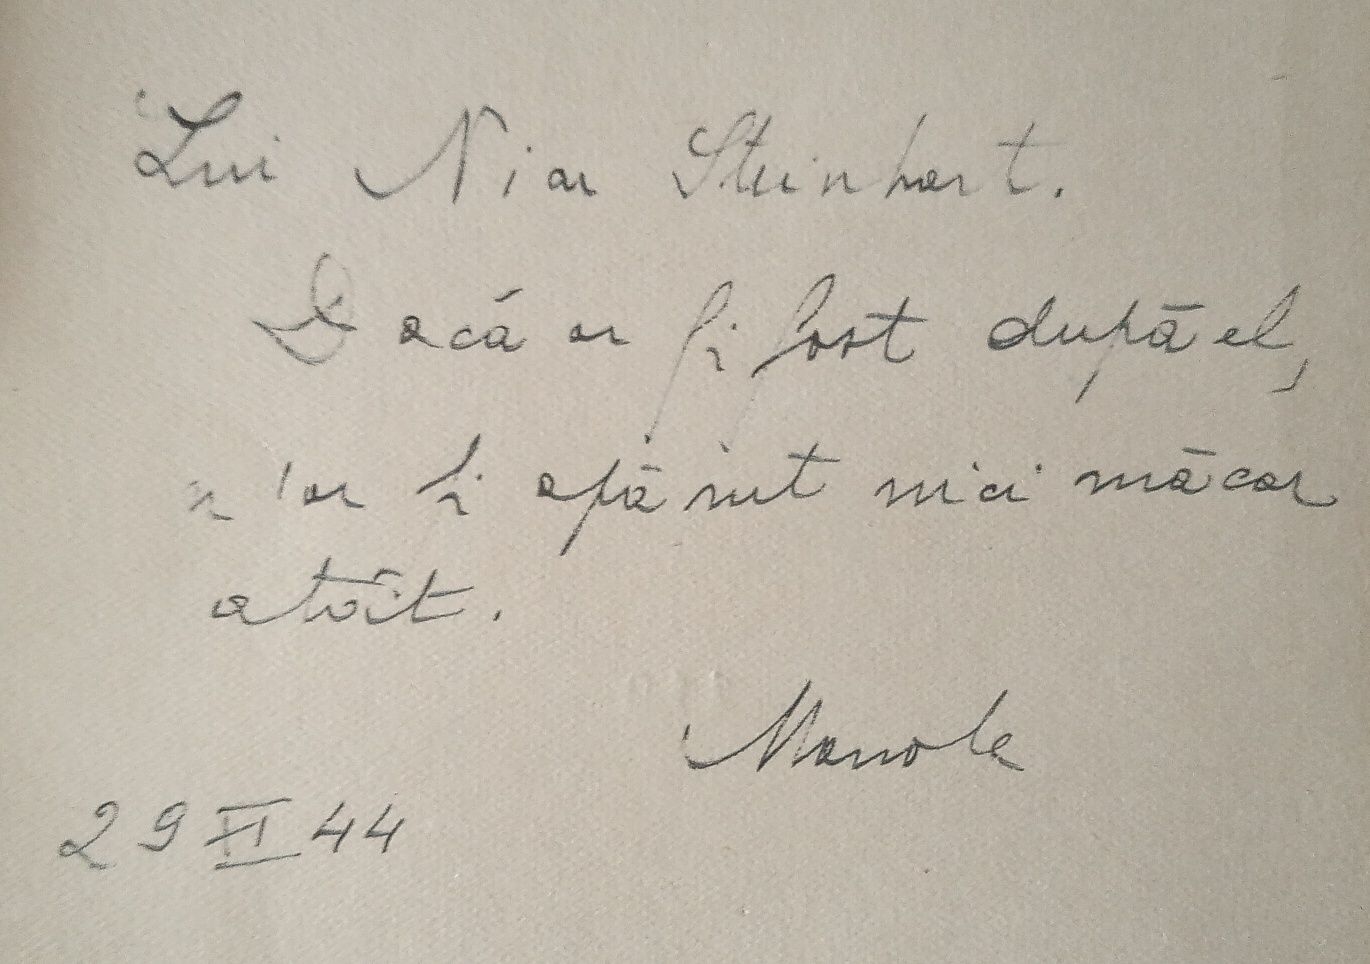 Lui Niar Steinhart.
Dacă ar fi fost după el,
n'ar fi apărut nici măcar
atât.
Manole
29 XI 44